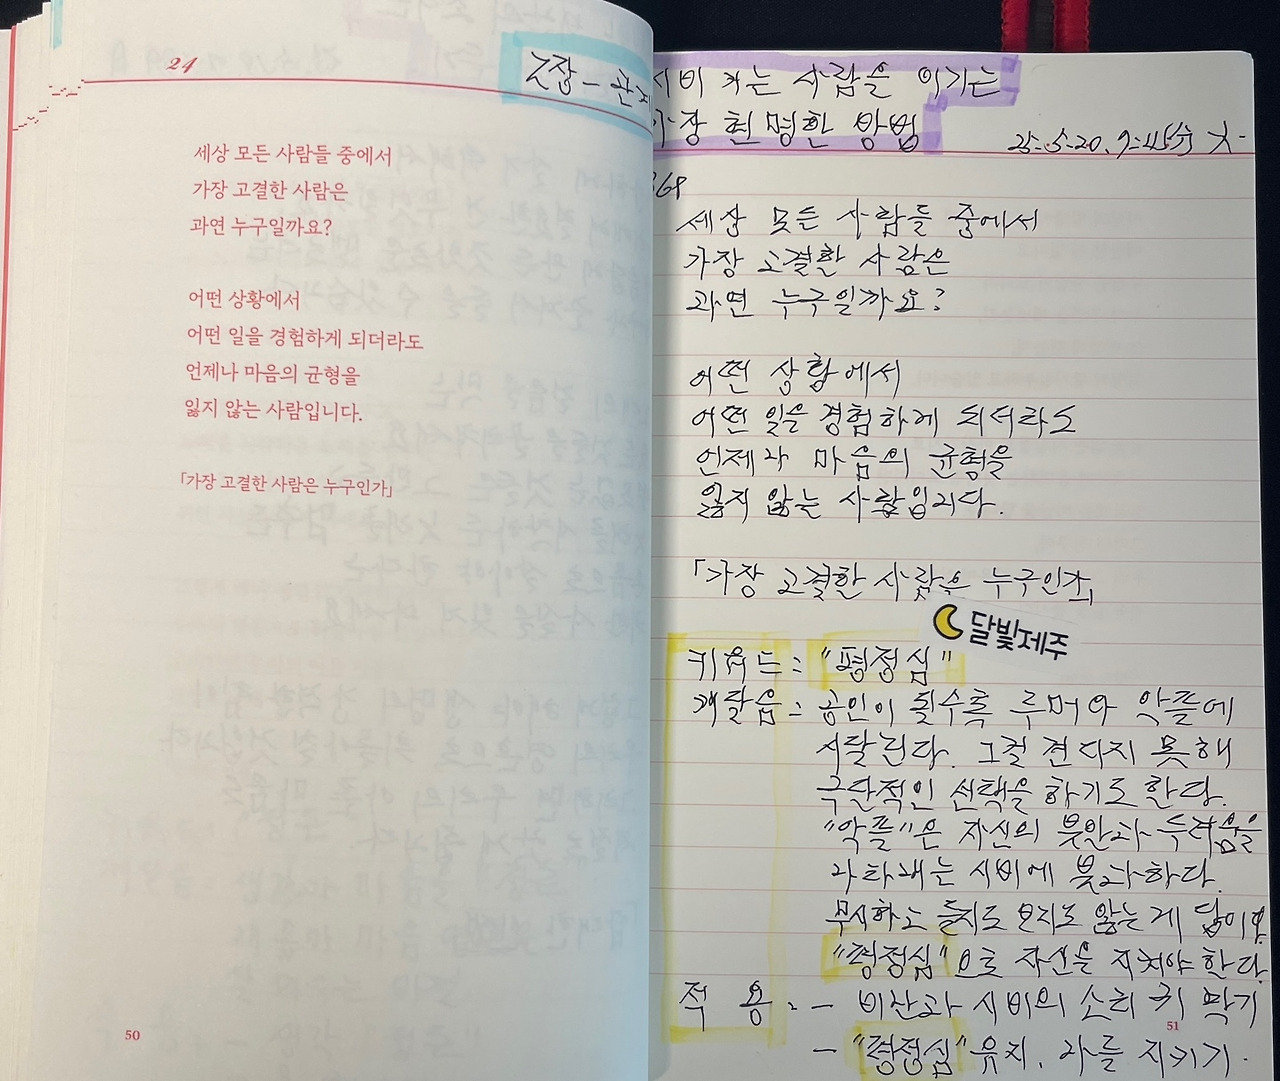 24
2장 - 관
세상 모든 사람들 중에서
가장 고결한 사람은
과연 누구일까요?
어떤 상황에서
어떤 일을 경험하게 되더라도
언제나 마음의 균형을
잃지 않는 사람입니다.
「가장 고결한 사람은 누구인가」
50
시비 거는 사람을 이기는
가장 현명한 방법
25-5-20.
세상 모든 사람들 중에서
가장 고결할 사람은
과연 누구일까요?
어떤 상황에서
어떤 일을 경험하게 되더라도
언제나 마음의 균형을
잃지 않는 사람입니다.
「가장 고결한 사람은 누구인가」
달빛제주
키워드 : "평정심"
깨달음 : 공인이 될수록 루머와 악플에
시달린다. 그걸 견디지 못해
극단적인 선택을 하기도 한다.
"악플"은 자신의 불안과 두려움을
나타내는 시비에 불과하다.
무시하고 듣지도 보지도 않는 게 답이다.
"평정심"으로 자신을 지켜야 한다.
적 용 : - 비난과 시비의 소리 귀 막기
51
- "평정심" 유지. 나를 지키기.